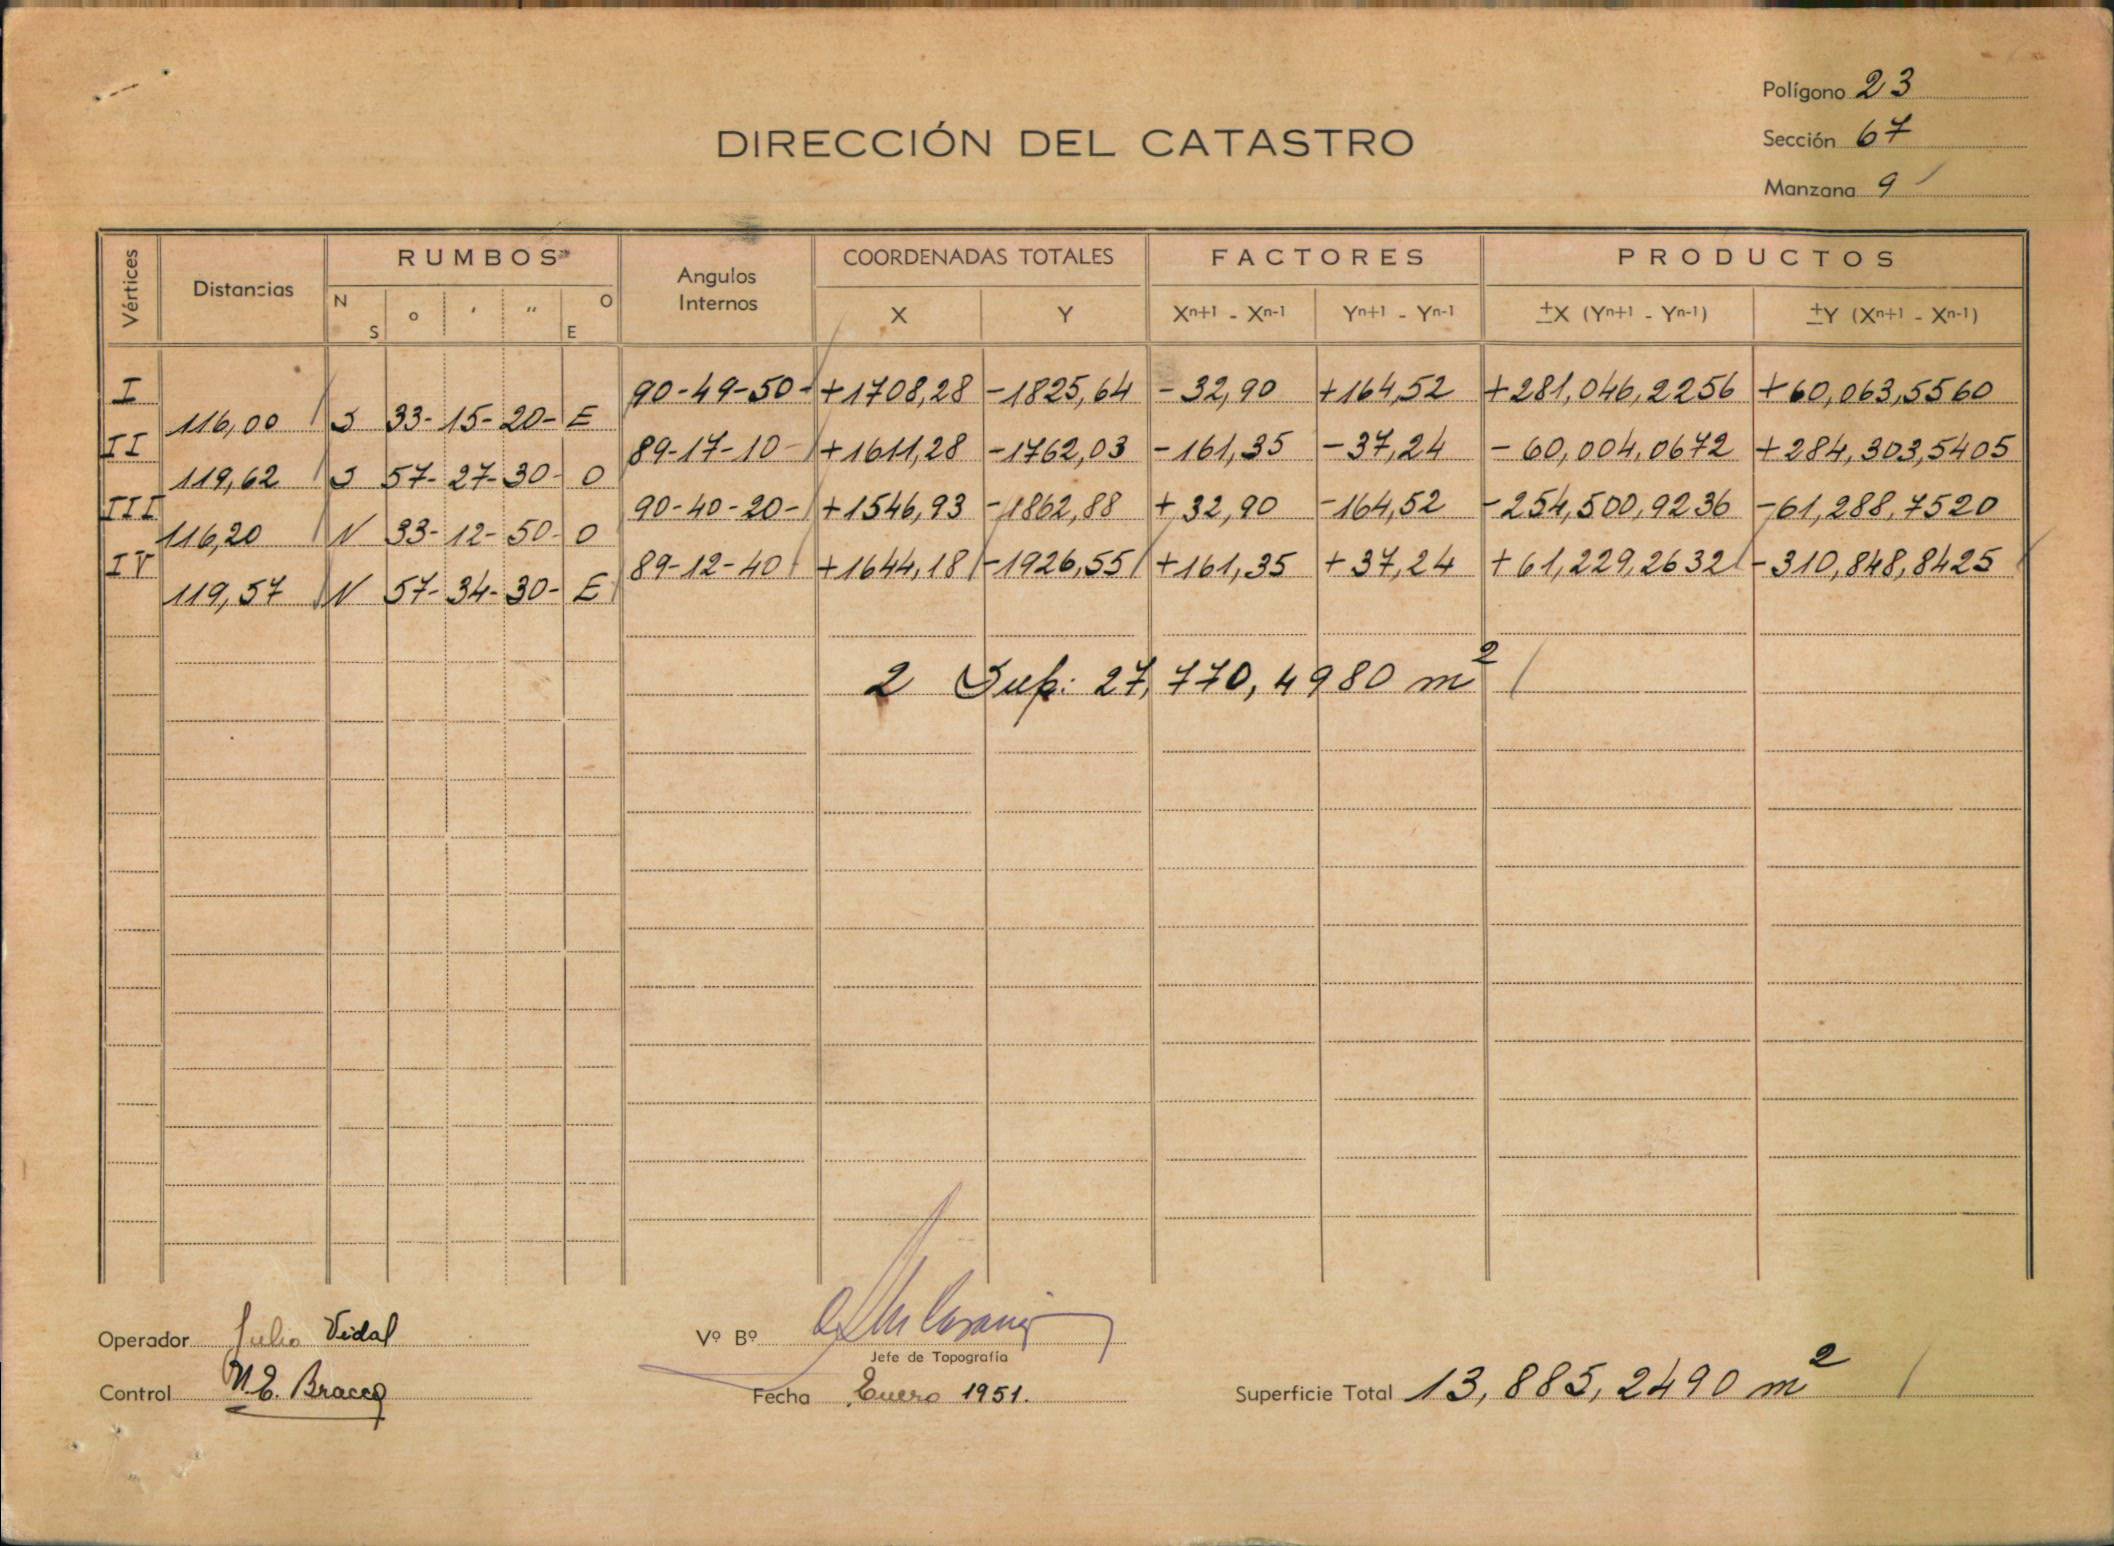 Polígono 23
DIRECCIÓN DEL CATASTRO
Sección 67
Manzana 9
Vértices Distancias RUMBOS Angulos Internos COORDENADAS TOTALES FACTORES PRODUCTOS
N S o ' " O E X Y Xn+1 - Xn-1 Yn+1 - Yn-1 ±X (Yn+1 - Yn-1) ±Y (Xn+1 - Xn-1)
I 90-49-50- +1708,28 -1825,64 -32,90 +164,52 +281,046,2256 +60,063,5560
116,00 S 33- 15- 20- E
II 89-17-10- +1611,28 -1762,03 -161,35 -37,24 -60,004,0672 +284,303,5405
119,62 S 57- 27- 30- O
III 90-40-20- +1546,93 -1862,88 +32,90 -164,52 -254,500,9236 -61,288,7520
116,20 N 33- 12- 50- O
IV 89-12-40 +1644,18 -1926,55 +161,35 +37,24 +61,229,2632 -310,848,8425
119,57 N 57- 34- 30- E
2 Sup: 27,770,4980 m²
Operador Julio Vidal
Vº Bº
Jefe de Topografía
Control M.E. Bracco
Fecha Enero 1951.
Superficie Total 13,885,2490 m²